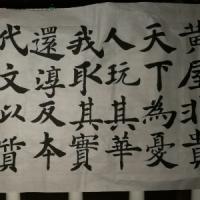 黄屋非貴
天下為憂
人玩其華
我取其實
還淳反本
代文以質